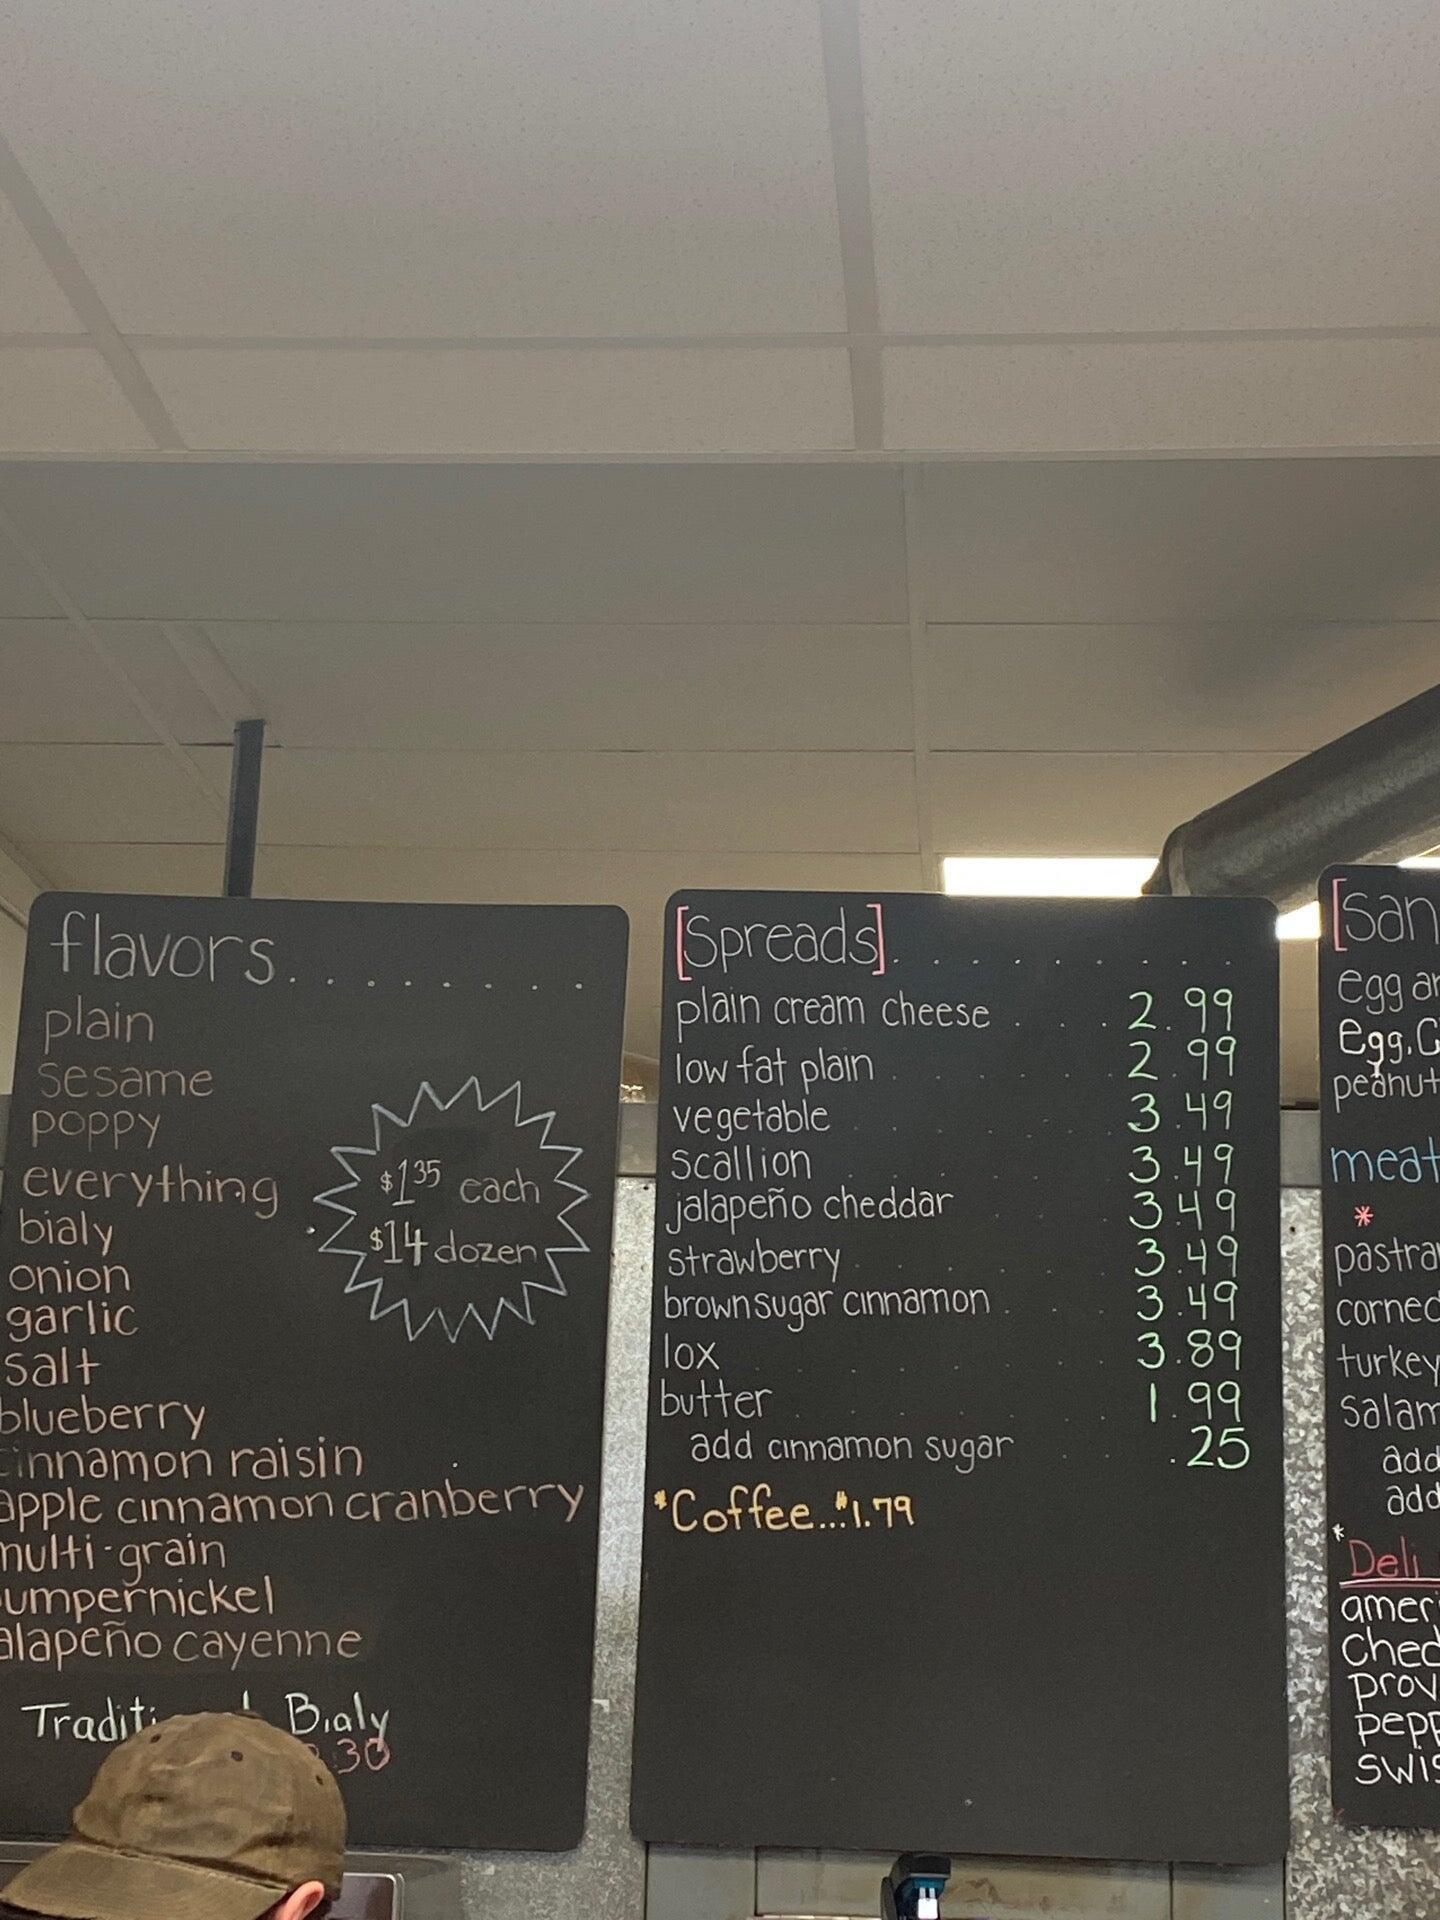 flavors.........
plain
sesame
poppy
everything
bialy
onion
garlic
salt
blueberry
cinnamon raisin
apple cinnamon cranberry
multi-grain
umpernickel
alapeño cayenne
$1.35 each
$14 dozen
Bialy
.30
[Spreads].........
plain cream cheese . . . 2.99
low fat plain 2.99
vegetable 3.49
scallion 3.49
jalapeño cheddar 3.49
strawberry 3.49
brownsugar cinnamon 3.49
lox 3.89
butter 1.99
add cinnamon sugar .25
*Coffee...$1.79
[San
egg
Egg.C
peanut
meat
*
pastra
corned
turkey
salam
add
add
*Deli
ameri
Ched
prov
pepp
swis